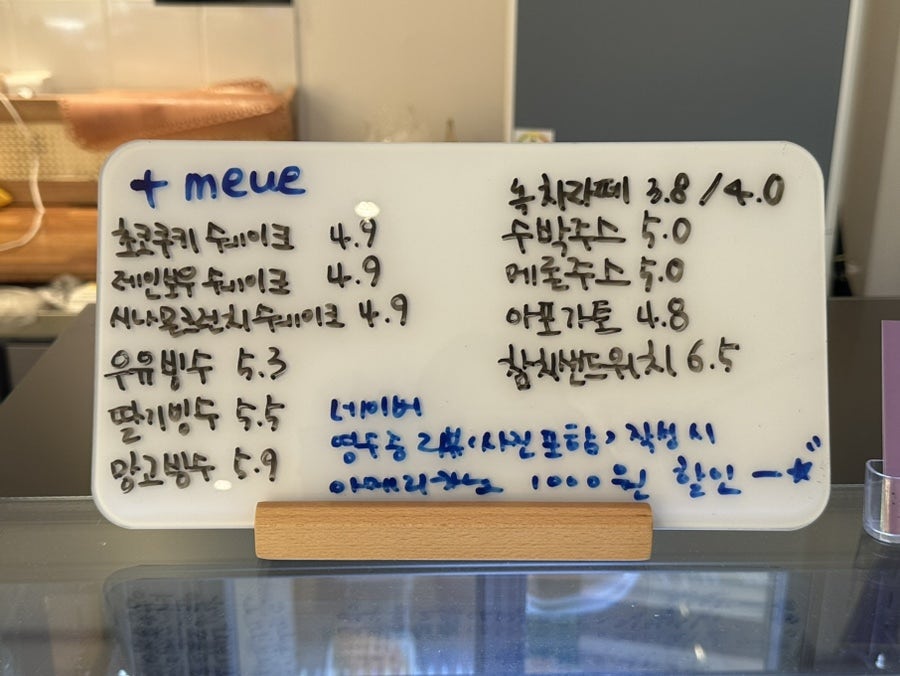 + meue
초코쿠키 쉐이크 4.9
레인보우 쉐이크 4.9
시나몬크런치쉐이크 4.9
우유빙수 5.3
딸기빙수 5.5
망고빙수 5.9
녹차라떼 3.8 / 4.0
수박주스 5.0
메론주스 5.0
아포가토 4.8
참치샌드위치 6.5
네이버
영수증 리뷰(사진 포함) 작성 시
아메리카노 1000원 할인